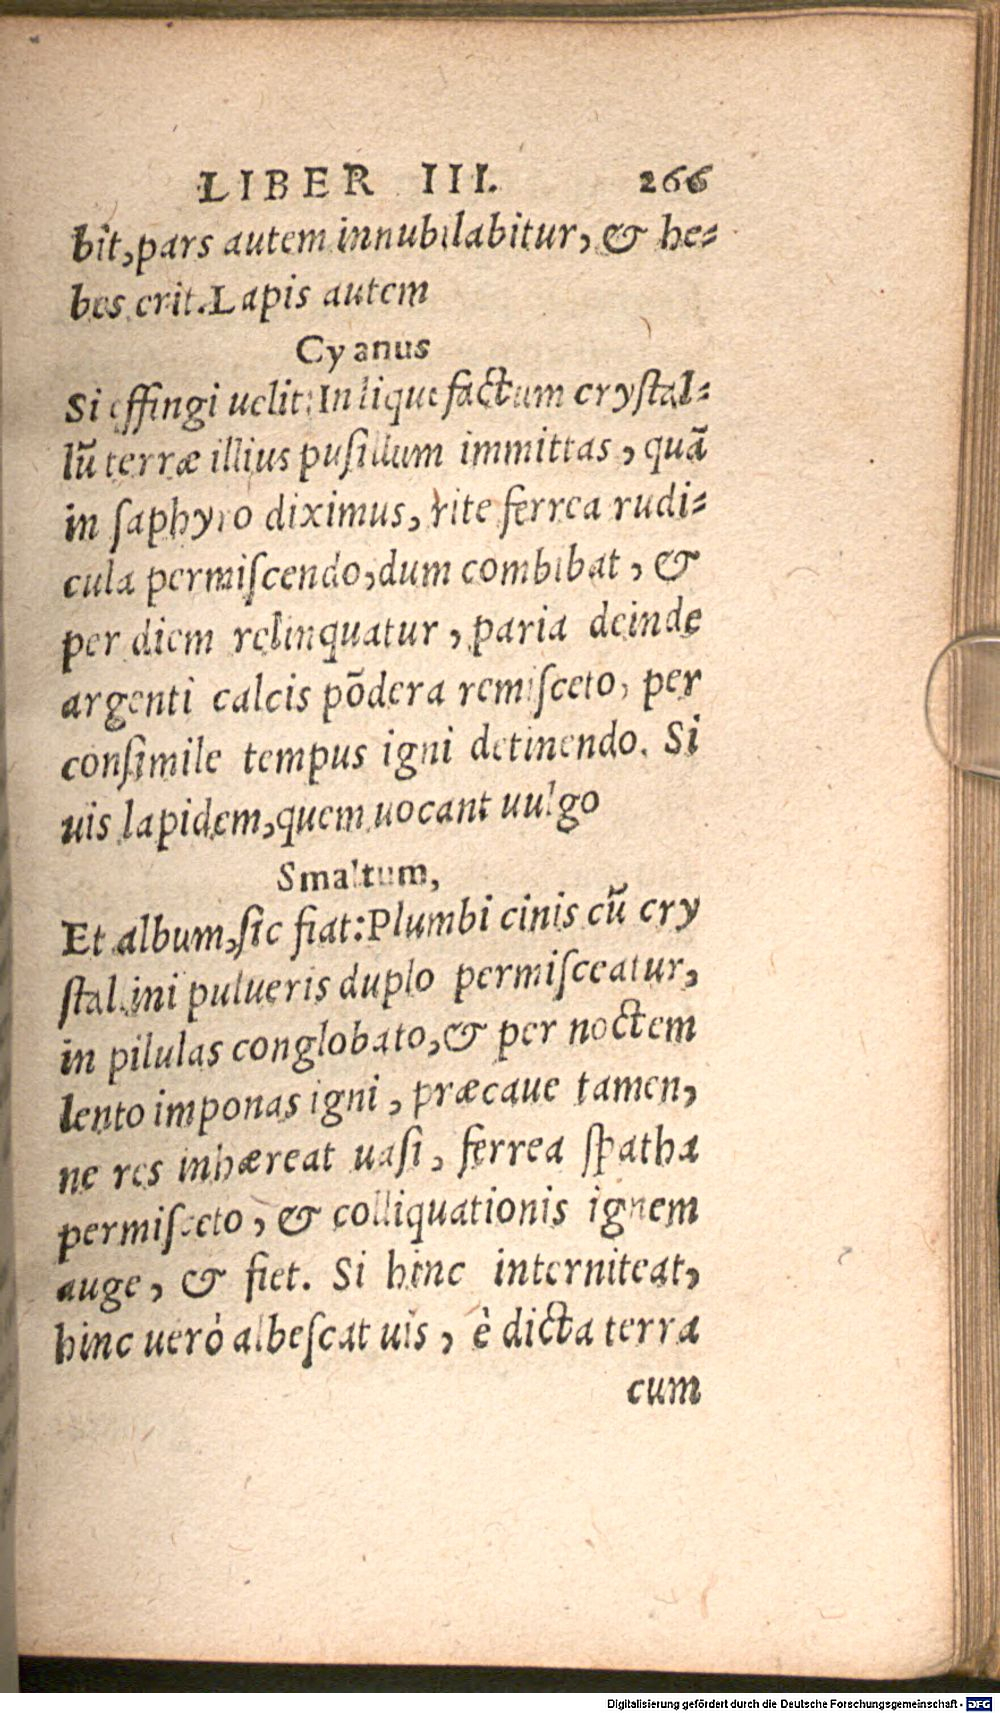 LIBER III. 266
bit, pars autem innubilabitur, & he-
bes erit. Lapis autem
Cyanus
Si effingi uelit: In liquefactum crystal-
lũ terræ illius pusillum immittas, quã
in saphyro diximus, rite ferrea rudi-
cula permiscendo, dum combibat, &
per diem relinquatur, paria deinde
argenti calcis põdera remisceto, per
consimile tempus igni detinendo. Si
uis lapidem, quem uocant uulgo
Smaltum,
Et album, sic fiat: Plumbi cinis cũ cry
stallini pulueris duplo permisceatur,
in pilulas conglobato, & per noctem
lento imponas igni, præcaue tamen,
ne res inhæreat uasi, ferrea spatha
permisceto, & colliquationis ignem
auge, & fiet. Si hinc interniteat,
hinc uerò albescat uis, è dicta terra
cum
Digitalisierung gefördert durch die Deutsche Forschungsgemeinschaft - DFG